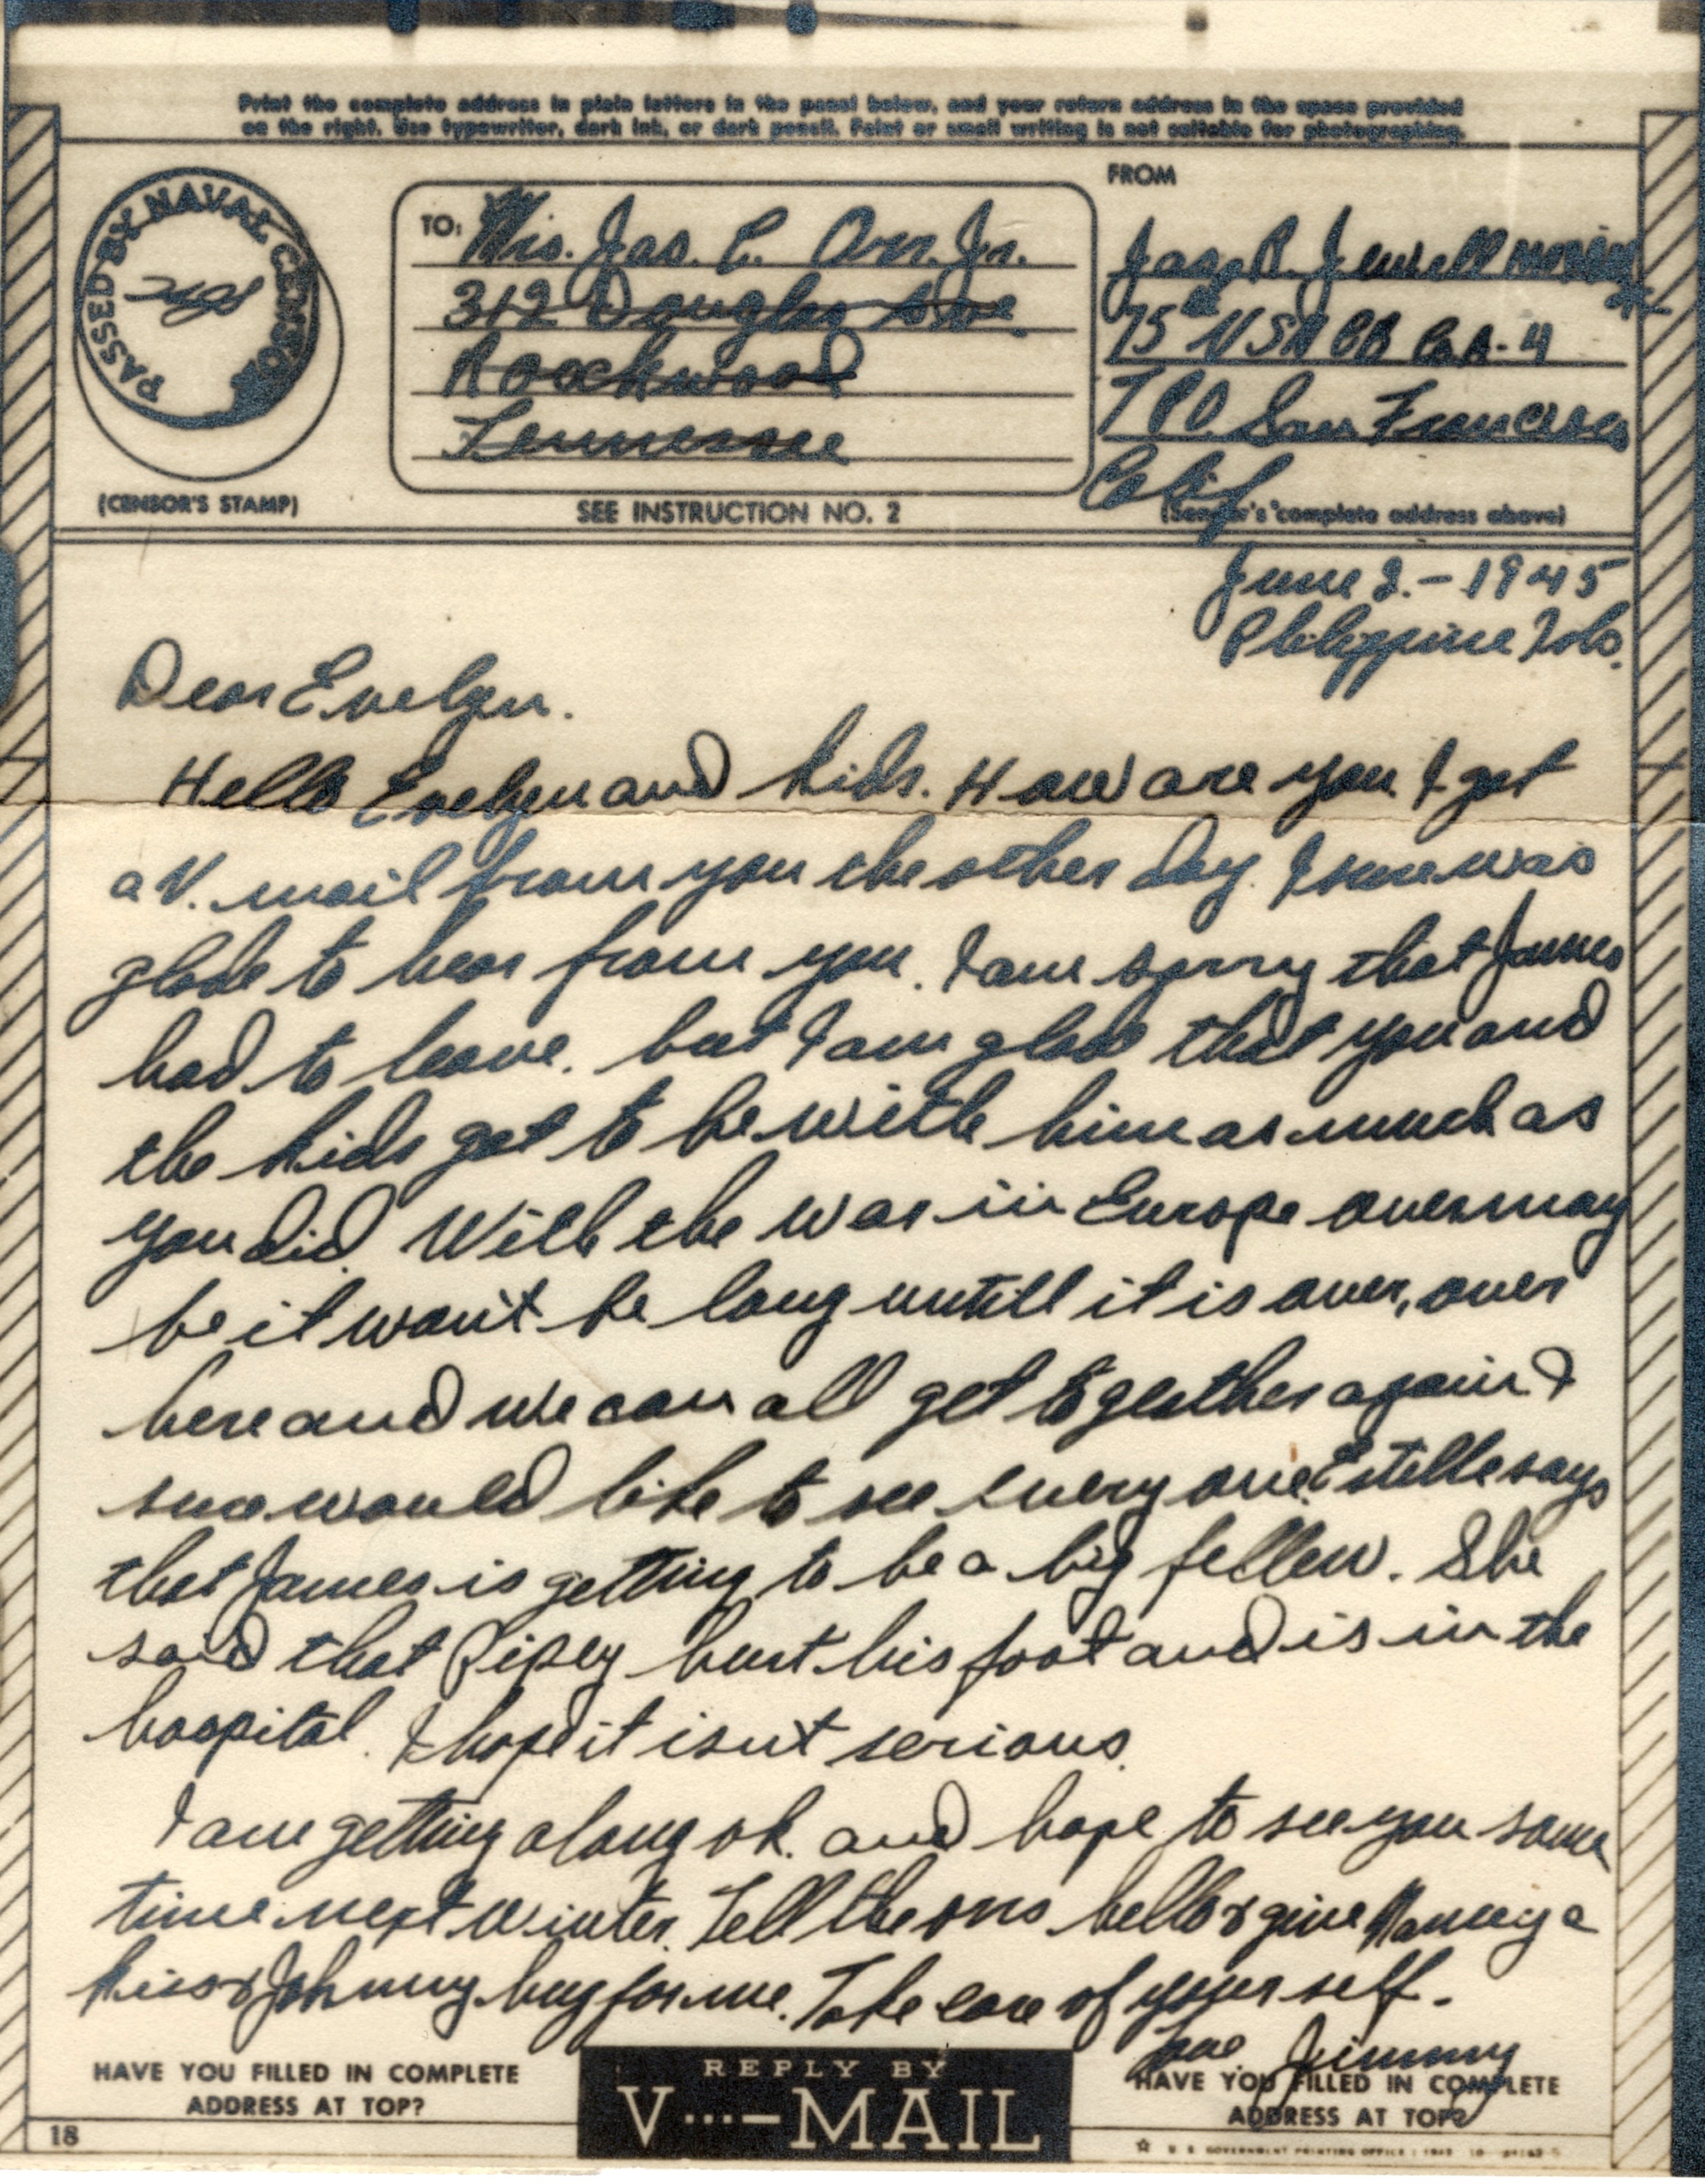 Print the complete address in plain letters in the panel below, and your return address in the space provided
on the right. Use typewriter, dark ink, or dark pencil. Faint or small writing is not suitable for photographing.
PASSED BY NAVAL CENSOR
(CENSOR'S STAMP)
TO:
Mrs. Jas. C. Orr. Jr.
312 Douglas Ave
Roockwood
Tennessee
SEE INSTRUCTION NO. 2
FROM
Jas. R. Jewell
75th USNCB Co A-4
FPO San Francisco
Calif
(Sender's complete address above)
June 2.-1945
Philippine Isls.
Dear Evelyn.
Hello Evelyn and kids. How are you I got
a V. mail from you the other day. I sure was
glade to hear from you. I am sorry that James
had to leave. but I am glad that you and
the kids got to be with him as much as
you did. With the war in Europe over may
be it won't be long untill it is over, over
here and we can all get togeather again I
sure would like to see every one. Estelle says
that James is getting to be a big fellow. She
said that Pipey hurt his foot and is in the
hospital. I hope it isn't serious.
I am getting along ok. and hope to see you some
time next winter. Tell the ons hello & give Nancy a
kiss & Johnny hug for me. Take care of your self.
Love Jimmy
HAVE YOU FILLED IN COMPLETE
ADDRESS AT TOP?
REPLY BY
V···—MAIL
HAVE YOU FILLED IN COMPLETE
ADDRESS AT TOP?
18
☆ U. S. GOVERNMENT PRINTING OFFICE : 1943